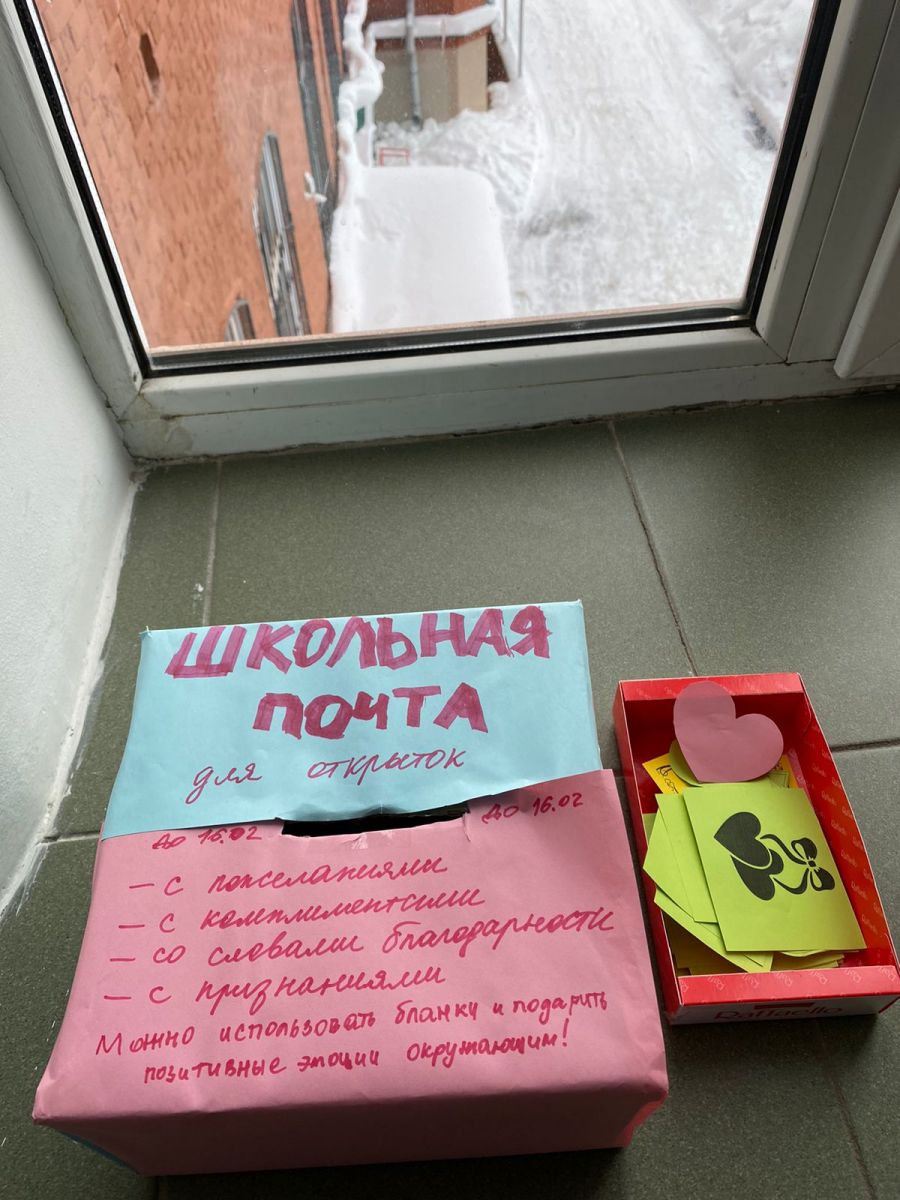 ШКОЛЬНАЯ
ПОЧТА
для открыток
до 16.02
до 16.02
– с пожеланиями
– с комплиментами
– со словами благодарности
– с признаниями
Можно использовать бланки и подарить
позитивные эмоции окружающим!
Raffaello